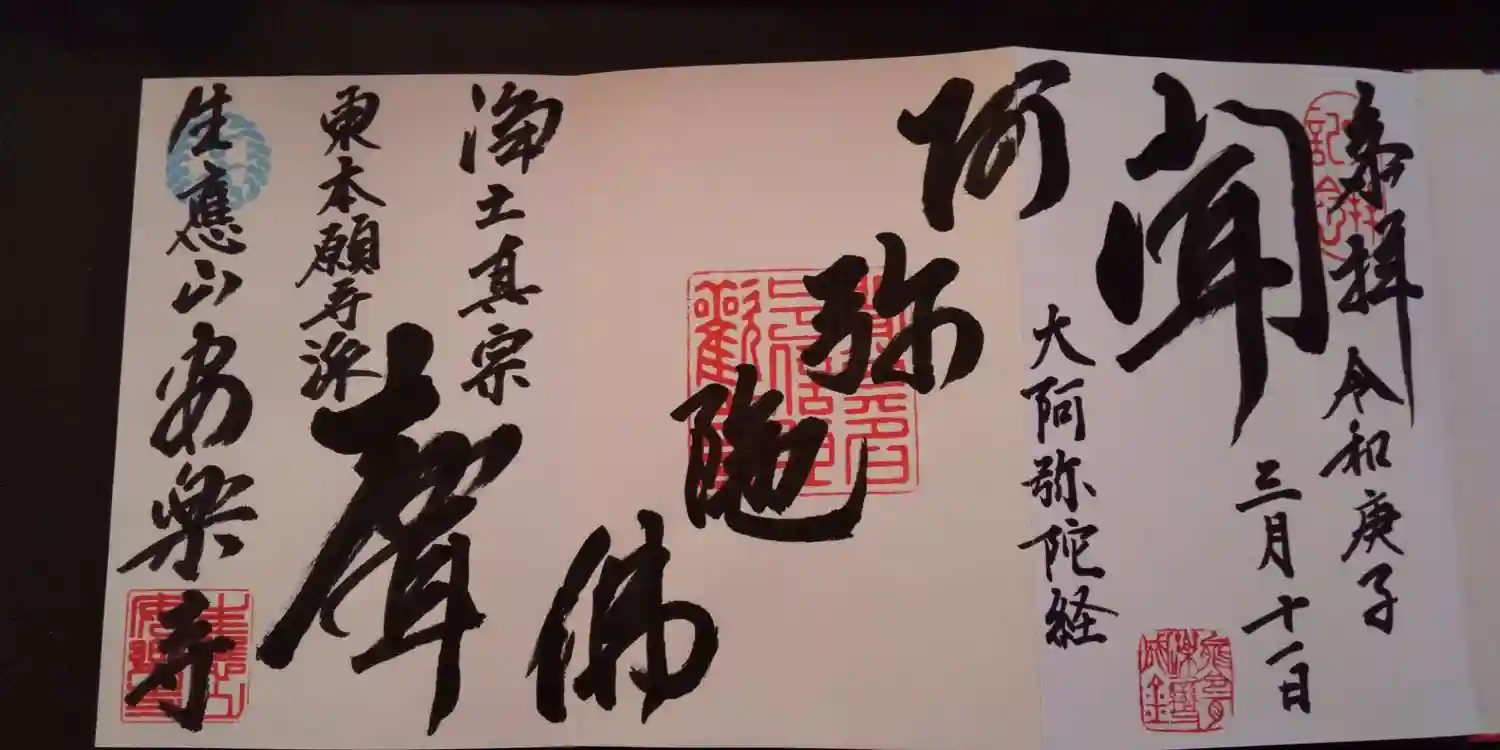 奉拝 令和庚子
三月十一日
聞
大阿弥陀経
阿弥陀佛
聲
浄土真宗
東本願寺派
生應山安楽寺
記念